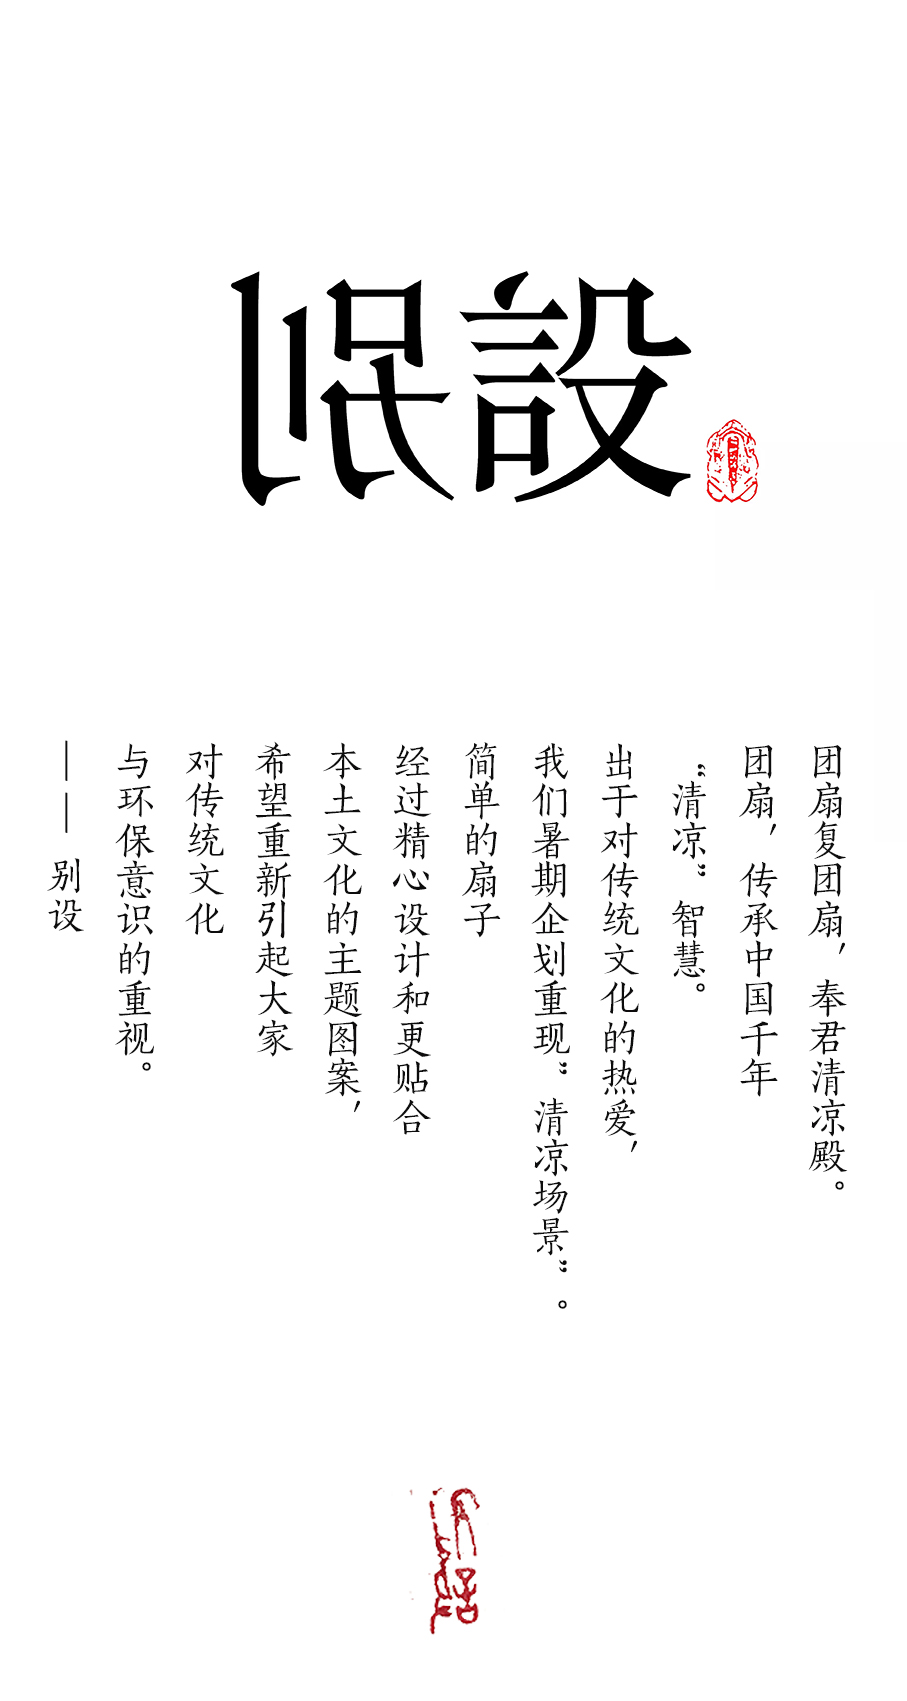 别設
团扇复团扇，奉君清凉殿。
团扇，传承中国千年
“清凉”智慧。
出于对传统文化的热爱，
我们暑期企划重现”清凉场景”。
简单的扇子
经过精心设计和更贴合
本土文化的主题图案，
希望重新引起大家
对传统文化
与环保意识的重视。
——别设